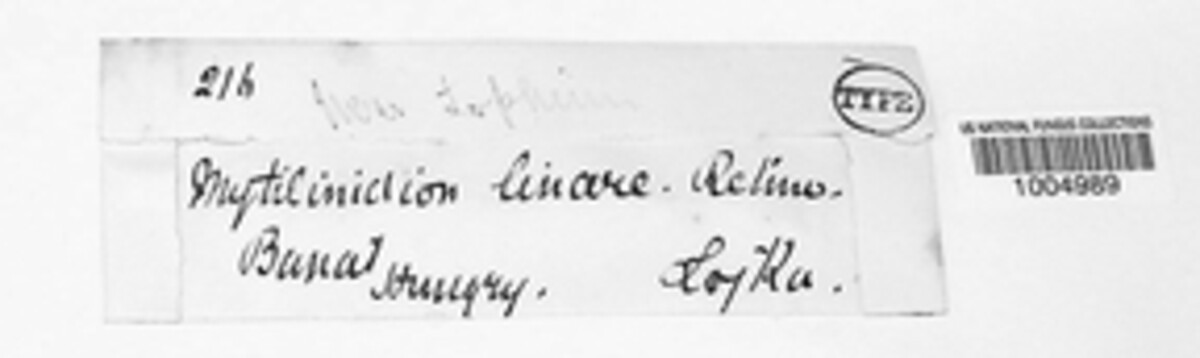 216
TYPE
Mytilinidion lineare. Rehm.
Banat Hungry. Lojka.
US NATIONAL FUNGUS COLLECTIONS
1004989